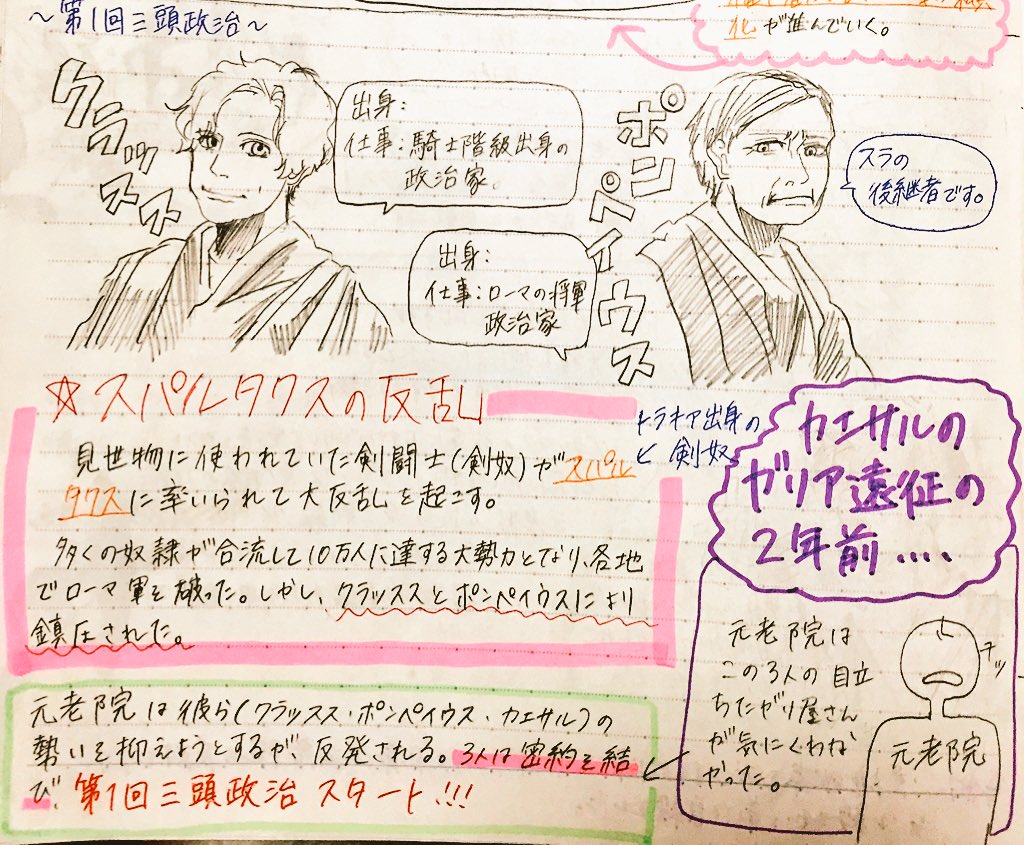 ～第1回三頭政治～
化が進んでいく。
クラッスス
出身:
仕事:騎士階級出身の
政治家。
ポンペイウス
スラの
後継者です。
出身:
仕事:ローマの将軍
政治家
☆スパルタクスの反乱
トラキア出身の
剣奴
見世物に使われていた剣闘士(剣奴)がスパル
タクスに率いられて大反乱を起こす。
多くの奴隷が合流して10万人に達する大勢力となり、各地
でローマ軍を破った。しかし、クラッススとポンペイウスにより
鎮圧された。
カエサルの
ガリア遠征の
2年前....
元老院は
この3人の目立
ちたがり屋さん
が気にくわな
かった。
チッ
元老院
元老院は彼ら(クラッスス・ポンペイウス・カエサル)の
勢いを抑えようとするが、反発される。3人は密約を結
び、第1回三頭政治スタート!!!